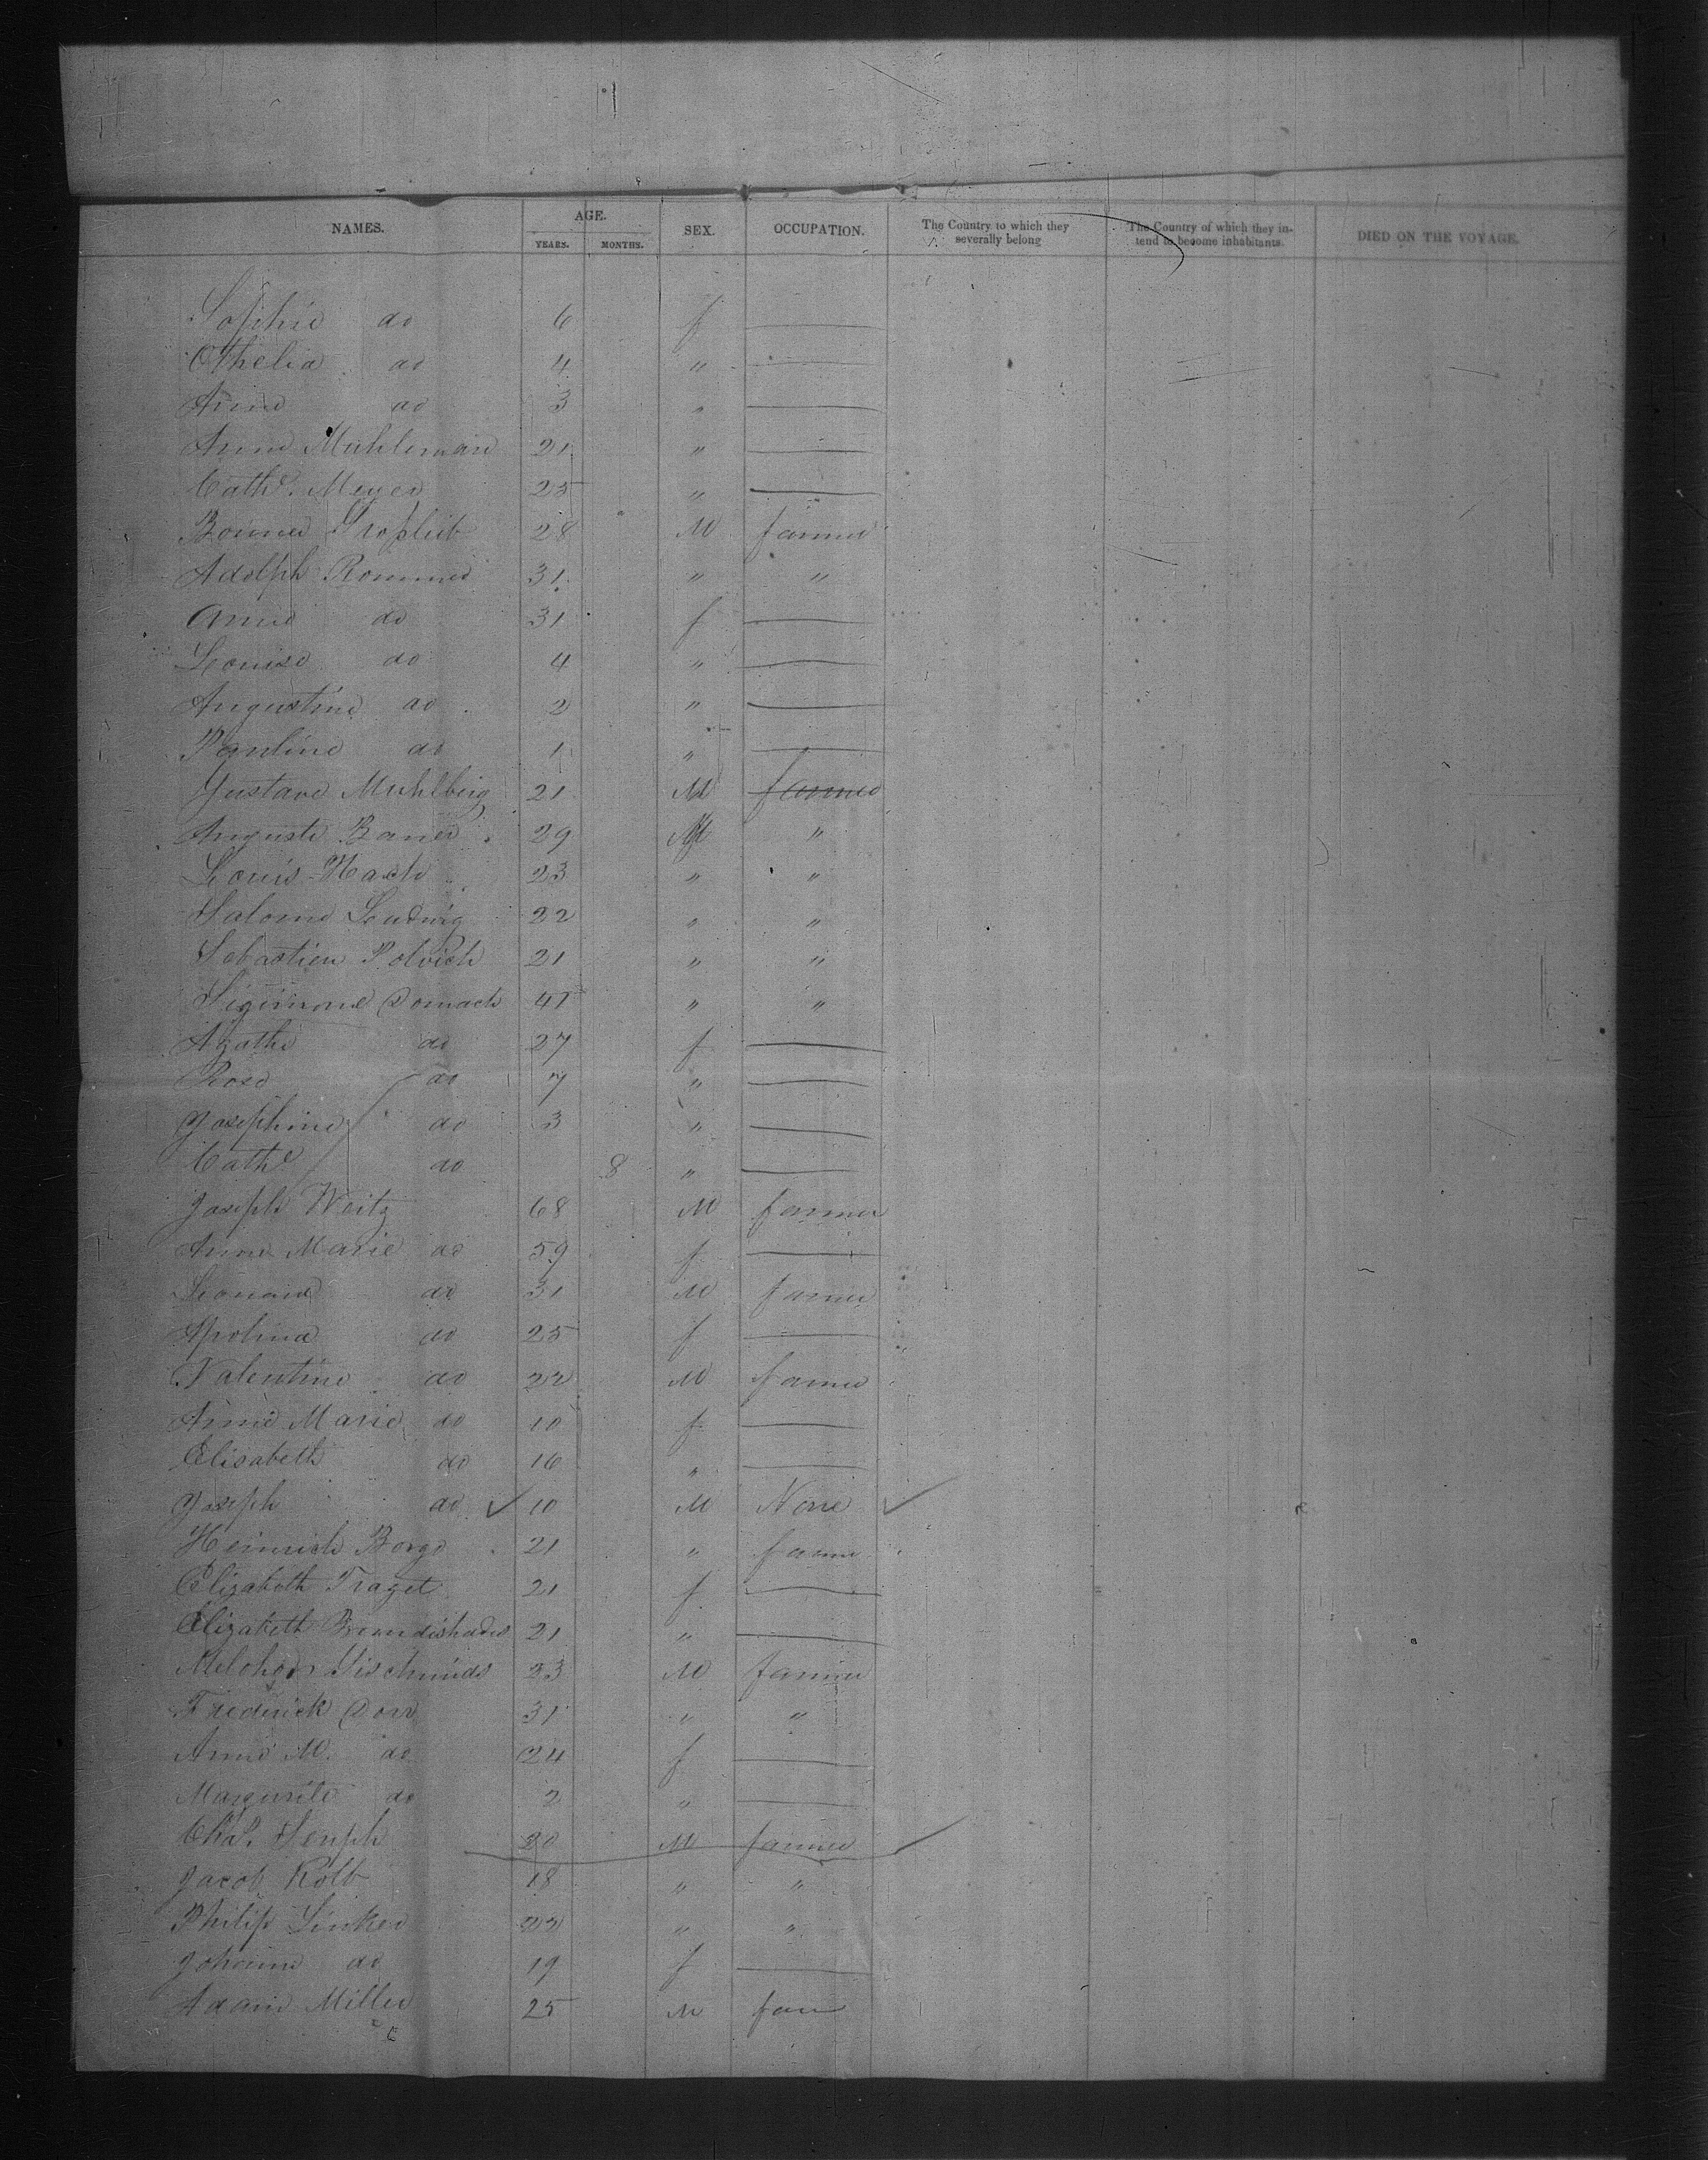 NAMES. AGE. SEX. OCCUPATION. The Country to which they severally belong The Country of which they intend to become inhabitants. DIED ON THE VOYAGE.
YEARS. MONTHS.
Sophie do 6 f
Othelia do 4 "
Anne do 3 "
Anne Muhleman 21 "
Cathe. Meyer 25 "
28 M farmer
Adolph Rommer 31 " "
Anne do 31 f
Louise do 4 "
Augustine do 2 "
Pauline do 1 "
Gustave Muhlberg 21 M farmer
Auguste Bauer 29 M "
Louis Hach 23 " "
Salome Ludwig 22 " "
Sebastien Polvich 21 " "
Sigismond Domach 41 " "
Agathe do 27 f
Rose do 7 "
Josephine do 3 "
Cathe do 8 "
Joseph Weitz 68 M farmer
Anne Marie do 59 f
Leonard do 31 M farmer
Apolina do 25 f
Valentine do 22 M farmer
Anne Marie do 10 f
Elisabeth do 16 "
Joseph do ✓ 10 M None ✓
Heinrich Borge 21 " farmer
Elizabeth Traget 21 f
Elizabeth 21 "
23 M farmer
Frederick Dorr 31 " "
Anne M. do 24 f
Margurite do 2 "
Chas. Senph 30 M farmer
Jacob Kolb 18 " "
Philip Linker 22 " "
Johanne do 19 f
Adam Miller 25 M farm